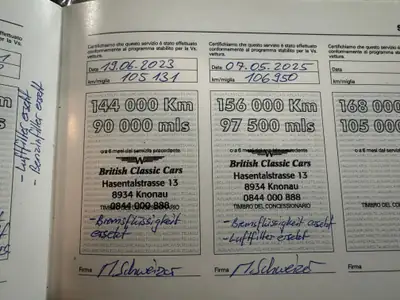 - Luftfilter ersetzt
- Benzinfilter ersetzt
Certifichiamo che questo servizio è stato effettuato
conforme al programma stabilito per la Vs.
vettura.
Data 19.06.2023
km/miglia 105 131
144 000 Km
90 000 mls
o a 6 mesi dal servizio precedente
British Classic Cars
Hasentalstrasse 13
8934 Knonau
0844 000 888
- Bremsflüssigkeit
ersetzt
Firma M.Schweizer
Certifichiamo che questo servizio è stato effettuato
conforme al programma stabilito per la Vs.
vettura.
Data 07.05.2025
km/miglia 106950
156 000 Km
97 500 mls
o a 6 mesi dal servizio precedente
British Classic Cars
Hasentalstrasse 13
8934 Knonau
0844 000 888
TIMBRO DEL CONCESSIONARIO
- Bremsflüssigkeit ersetzt
- Luftfilter ersetzt
Firma M.Schweizer
S
Certifichiamo
conforme al
vettura.
Data
km/miglia
168 000
105 000
o a 6 mesi
TIMBRO DEL
Firma